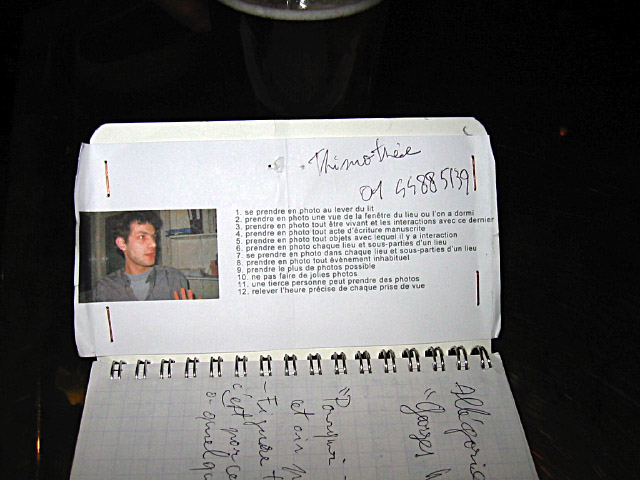 Thimothée
01 44885139
1. se prendre en photo au lever du lit
2. prendre en photo une vue de la fenêtre du lieu ou l'on a dormi
3. prendre en photo tout être vivant et les interactions avec ce dernier
4. prendre en photo tout acte d'écriture manuscrite
5. prendre en photo tout objets avec lequel il y a interaction
6. prendre en photo chaque lieu et sous-parties d'un lieu
7. se prendre en photo dans chaque lieu et sous-parties d'un lieu
8. prendre en photo tout évènement inhabituel
9. prendre le plus de photos possible
10. ne pas faire de jolies photos
11. une tierce personne peut prendre des photos
12. relever l'heure précise de chaque prise de vue
Allégorie
"Gorges
"Pourquoi -
et on
- Figure
c'est pour ce
o- quelqu